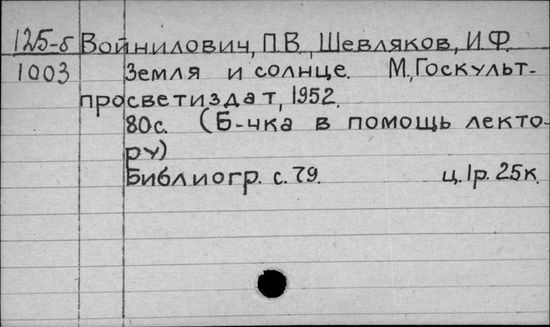 125-б Войнилович, П.В., Шевляков, И.Ф.
1003 Земля и солнце. М., Госкульт-
просветиздат, 1952.
80с. (Б-чка в помощь лекто-
ру)
Библиогр. с. 79. ц. 1р. 25к.